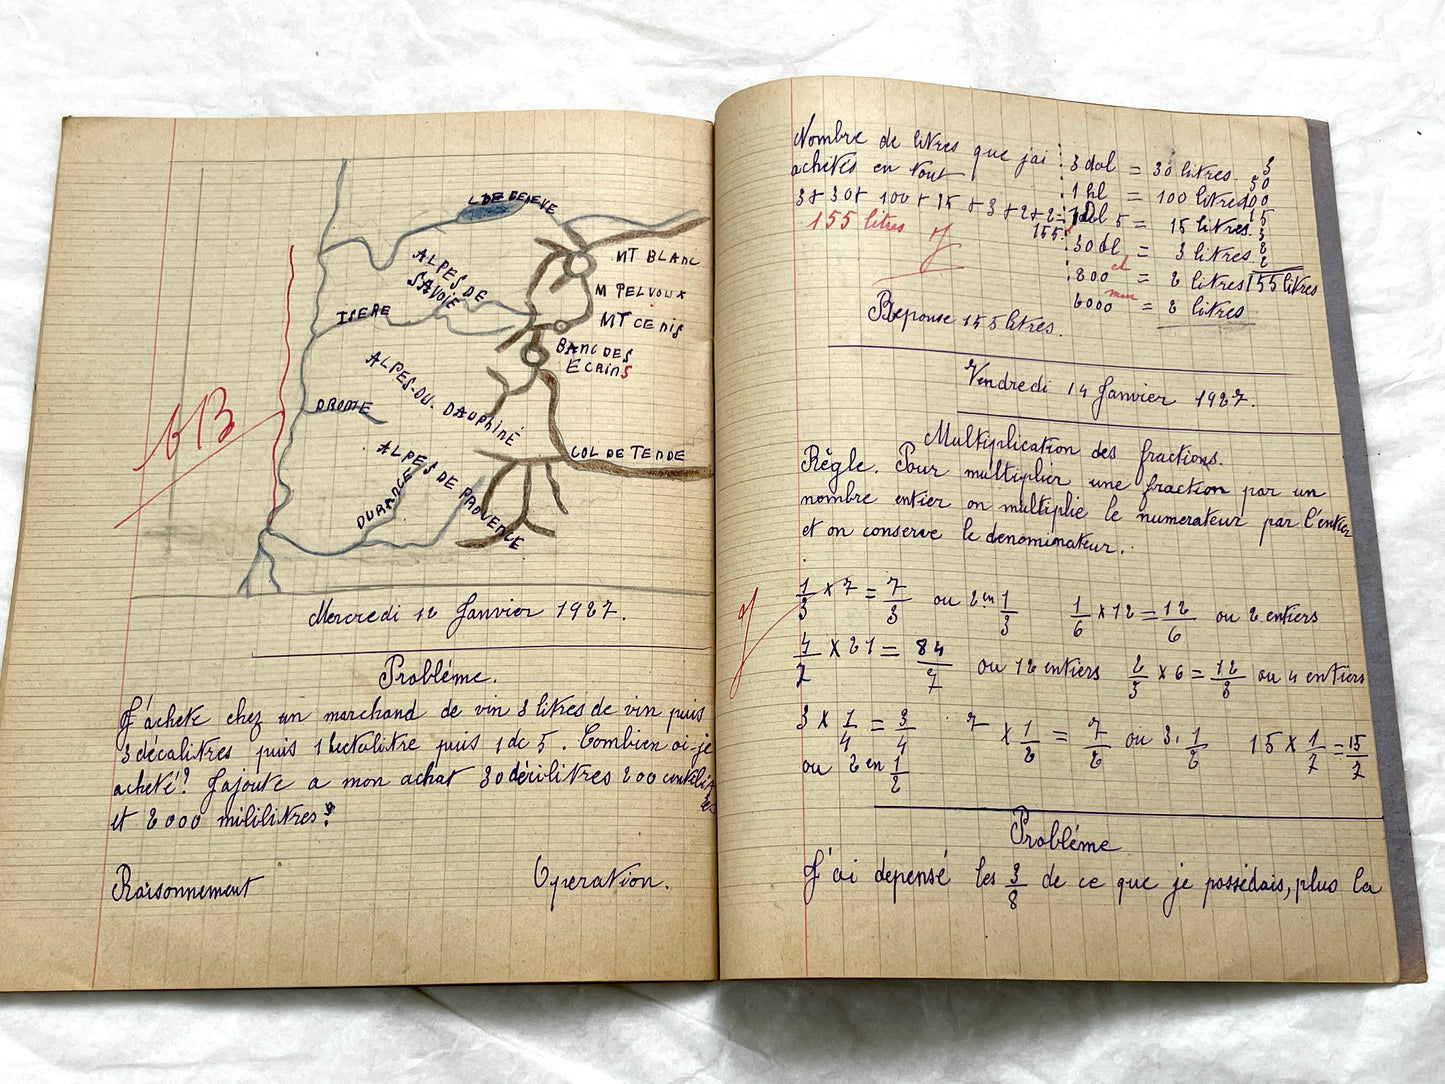 L DE GENEVE
MT BLANC
ALPES DE
SAVOIE
M PELVOUX
ISERE
MT CENIS
BANC DES
ECRINS
ALPES-DU-DAUPHINÉ
DROME
COL DE TENDE
ALPES DE PROVENCE
DURANCE
tB
Mercredi 12 Janvier 1927.
Probléme.
J'achete chez un marchand de vin 3 litres de vin puis
3 décalitres puis 1 hectolitre puis 1 dc 5. Combien ai-je
acheté? J'ajoute a mon achat 30 décilitres 200 centilit
res
et 2000 mililitres?
Raisonnement
Operation.
Nombre de litres que j'ai
achetés en tout
3 + 30 + 100 + 15 + 3 + 2 + 2 =
155
155 litres J
3 dal = 30 litres.
1 hl = 100 litres
1 Dal 5 = 15 litres.
30 dl = 3 litres
200 cl = 2 litres
2000 mm = 2 litres
3
30
100
15
3
2
2
155 litres
Reponse 155 litres.
Vendredi 14 Janvier 1927.
Multiplication des fractions.
Règle. Pour multiplier une fraction par un
nombre entier on multiplie le numerateur par l'entier
et on conserve le denominateur.
1/3 x 7 = 7/3 ou 2 en 1/3 1/6 x 12 = 12/6 ou 2 entiers
4/7 x 21 = 84/7 ou 12 entiers 2/3 x 6 = 12/3 ou 4 entiers
3 x 1/4 = 3/4 7 x 1/2 = 7/2 ou 3. 1/2 15 x 1/7 = 15/7
ou 2 en 1/2
J
Probléme
J'ai depensé les 3/8 de ce que je possédais, plus la